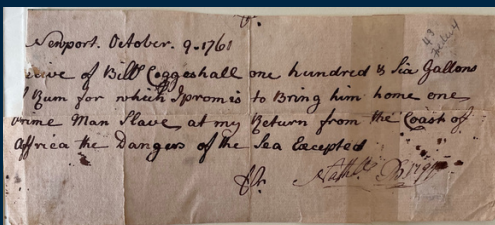 Newport. October. 9-1761
ceive of Bill Coggeshall one hundred & Six Gallons
Rum for which I promis to Bring him home one
prime Man Slave at my Return from the Coast of
Affrica the Dangers of the Sea Excepted
Nathll Briggs